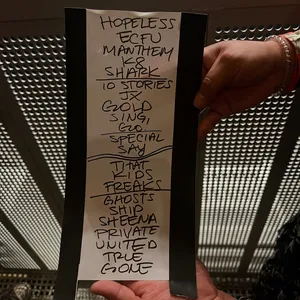 HOPELESS
ECFU
MANTHEM
K8
SHARK
10 STORIES
JX
GOLD
SING,
GO
SPECIAL
SAY
THAT
KIDS
FREAKS
GHOSTS
SHIP
SHEENA
PRIVATE
UNITED
TRUE
GONE